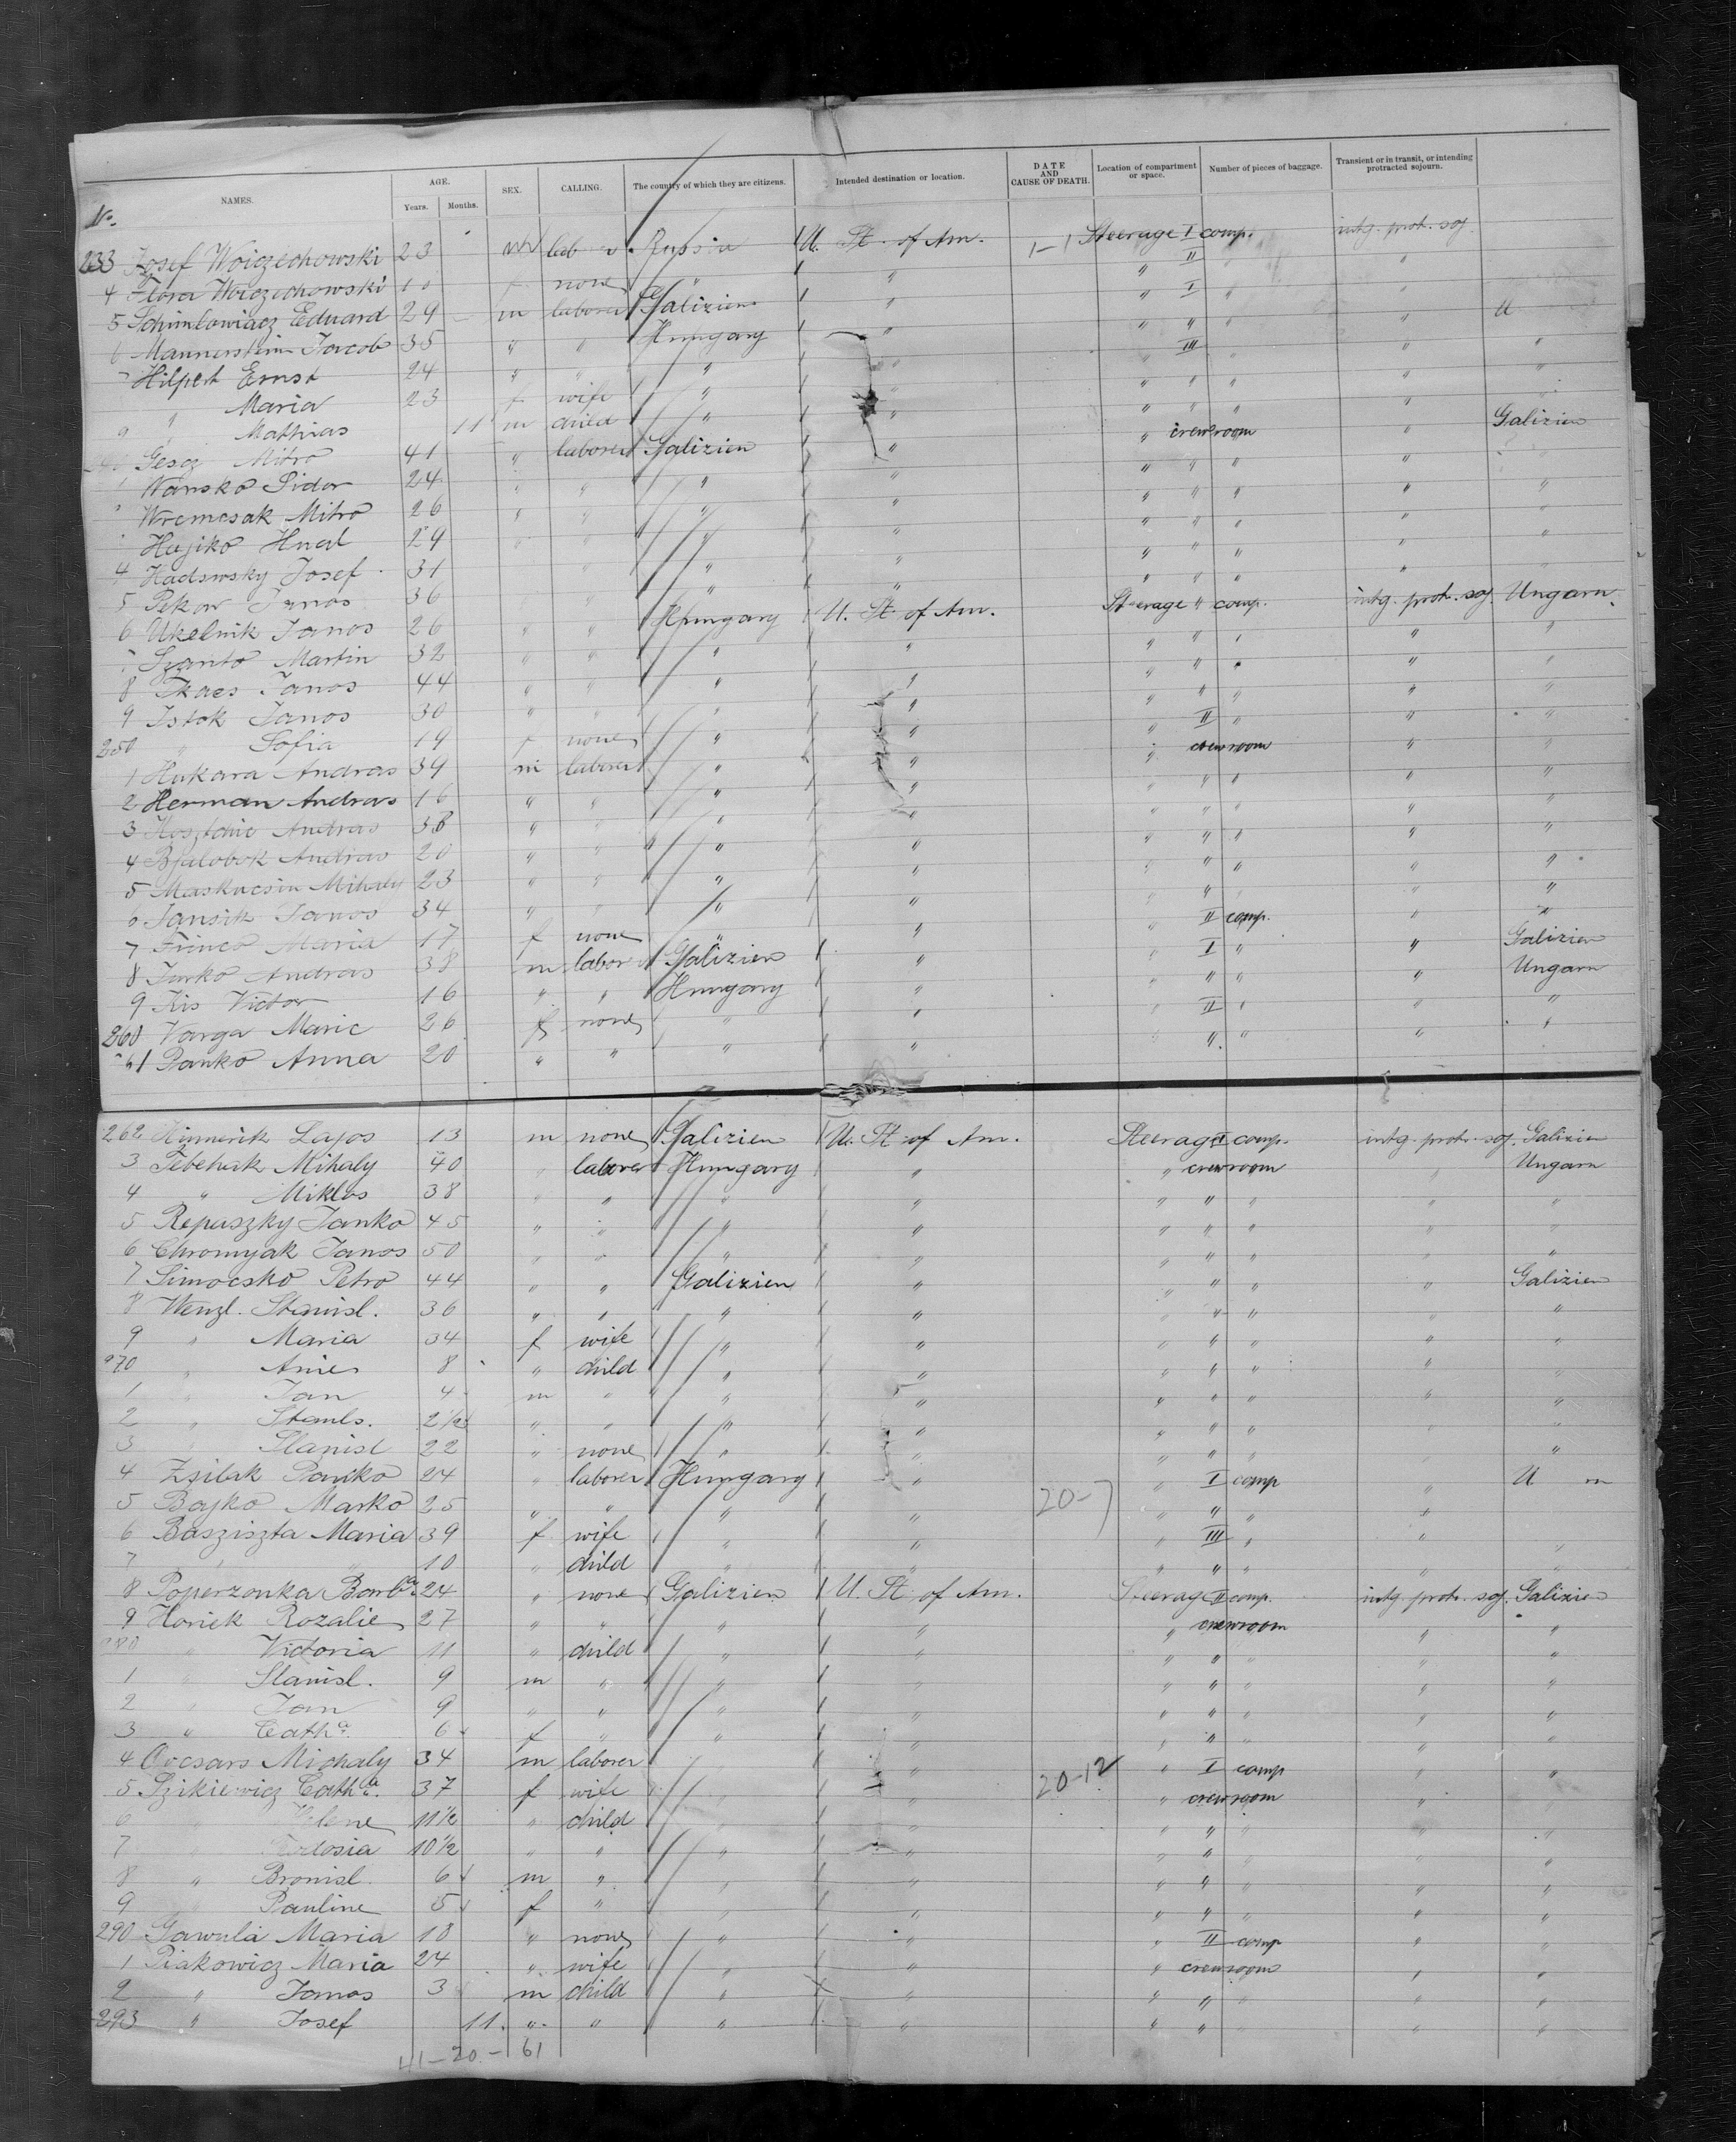 No. NAMES. AGE. Years. Months. SEX. CALLING. The country of which they are citizens. Intended destination or location. DATE AND CAUSE OF DEATH. Location of compartment or space. Number of pieces of baggage. Transient or in transit, or intending protracted sojourn.
233 Josef Woiczechowski 23 m Russia U. St. of Am. 1-1 Steerage I comp. intg. prot. soj.
4 Flora Woiczechowski none " " " II " "
5 Eduard 29 m laborer Galizien " " I " " U
6 Jacob 35 " " Hungary " " " " " "
7 Hilpert Ernst 24 " " " " " III " " "
" Maria 23 f wife " " " " " " "
9 " Mathias 11 m child " " " " " " "
Mitro 41 " laborer Galizien " " crewroom " Galizien
Wansko Sidor 24 " " " " " " " " "
Mitro 26 " " " " " " " " "
Hajiko 29 " " " " " " " " "
4 Josef 31 " " " " " " " "
5 Janos 36 " " " " " " " "
6 Ukelnik Janos 26 " " Hungary U. St. of Am. Steerage " comp. intg. prot. soj. Ungarn
7 Szanto Martin 32 " " " " " " " " "
8 Janos 44 " " " " " " " " "
9 Istok Janos 30 " " " " " " " " "
250 " Sofia 19 f none " " " II " " "
1 Hukara Andras 39 m laborer " " " crewroom " "
2 Herman Andras 16 " " " " " " " " "
3 Andras 38 " " " " " " " " "
4 Bjalobok Andras 20 " " " " " " " " "
5 Maskucsin Mihaly 23 " " " " " " " " "
6 Jansik Janos 34 " " " " " " " " "
7 Maria 17 f none " " " II comp. " "
8 Jurko Andras 38 m labor Galizien " " I " " Galizien
9 Kis Victor 16 " " Hungary " " " " " Ungarn
260 Varga Marie 26 f none " " " II " " "
61 Panko Anna 20 " " " " " " " "
262 Lajos 13 m none Galizien U. St. of Am. Steerage II comp. intg. prot. soj. Galizien
3 Mihaly 40 " laborer Hungary " " crewroom " Ungarn
4 " Miklos 38 " " " " " " " " "
5 Repaszky Janko 45 " " " " " " " " "
6 Chromyak Janos 50 " " " " " " " " "
7 Simocsko Petro 44 " " Galizien " " " " " Galizien
8 Wenzl. Stanisl. 36 " " " " " " " " "
9 " Maria 34 f wife " " " " " " "
270 " 8 " child " " " " " " "
1 " Jan 4 m " " " " " " " "
2 " Stanls. 2 1/2 " " " " " " " " "
3 " Stanisl 22 " none " " " " " " "
4 Panko 24 " laborer Hungary " " I comp " U n
5 Bojko Marko 25 " " " " 20-7 " " " "
6 Basziszta Maria 39 f wife " " " III " " "
7 " " 10 " child " " " " " " "
8 Poperzonka Barba. 24 " none Galizien U. St. of Am. Steerage II comp. intg. prot. soj. Galizien
9 Horick Rozalie 27 " " " " " crewroom " "
280 " Victoria 11 " child " " " " " " "
1 " Stanisl. 9 m " " " " " " " "
2 " Jan 9 " " " " " " " " "
3 " Catha. 6 f " " " " " " " "
4 Michaly 34 m laborer " " " I comp " "
5 Catha. 37 f wife " " 20-12 " crewroom " "
6 " Helene 11 1/2 " child " " " " " " "
7 " 10 1/2 " " " " " " " " "
8 " Bronisl. 6 m " " " " " " " "
9 " Pauline 5 f " " " " " " " "
290 Gawula Maria 18 " none " " " II comp " "
1 Piakowicz Maria 24 " wife " " " crewroom " "
2 " Janos 3 m child " " " " " " "
293 " Josef 11 " " " " " " " " "
41-20-61